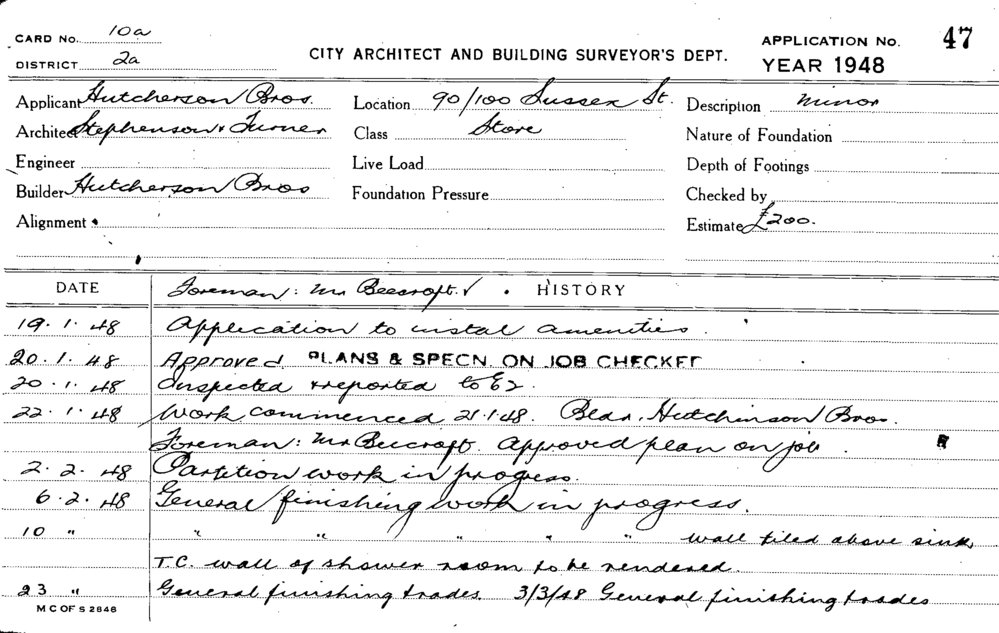 CARD No. 10a
DISTRICT 2a
CITY ARCHITECT AND BUILDING SURVEYOR'S DEPT.
APPLICATION No. 47
YEAR 1948
Applicant Hutcherson Bros. Location 90/100 Sussex St. Description Minor
Architect Stephenson & Turner Class Store Nature of Foundation
Engineer Live Load Depth of Footings
Builder Hutcherson Bros Foundation Pressure Checked by
Alignment Estimate £200.
DATE Foreman: Mr Beecroft. HISTORY
19.1.48 Application to instal amenities.
20.1.48 Approved. PLANS & SPECN. ON JOB CHECKED
20.1.48 Inspected & reported to
22.1.48 Work commenced 21.1.48. Hutchinson Bros.
Foreman: Mr Beecroft. Approved plan on job.
2.2.48 Partition work in progress.
6.2.48 General finishing work in progress.
10 " " " " " " wall tiled above sink,
T.C. wall of shower room to be rendered.
23 " General finishing trades. 3/3/48 General finishing trades
M C OF S 2848